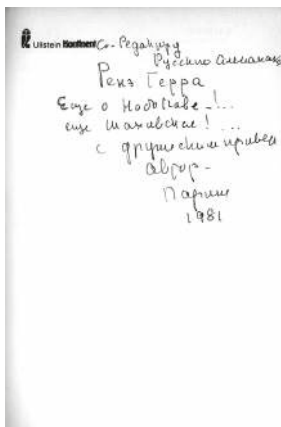 Ullstein Kontinent Со-Редактору
Русского Альманаха
Ренэ Герра
Еще о Набокове_!..
еще Шаховское! ...
с дружеским приветом
автор-
Париж
1981